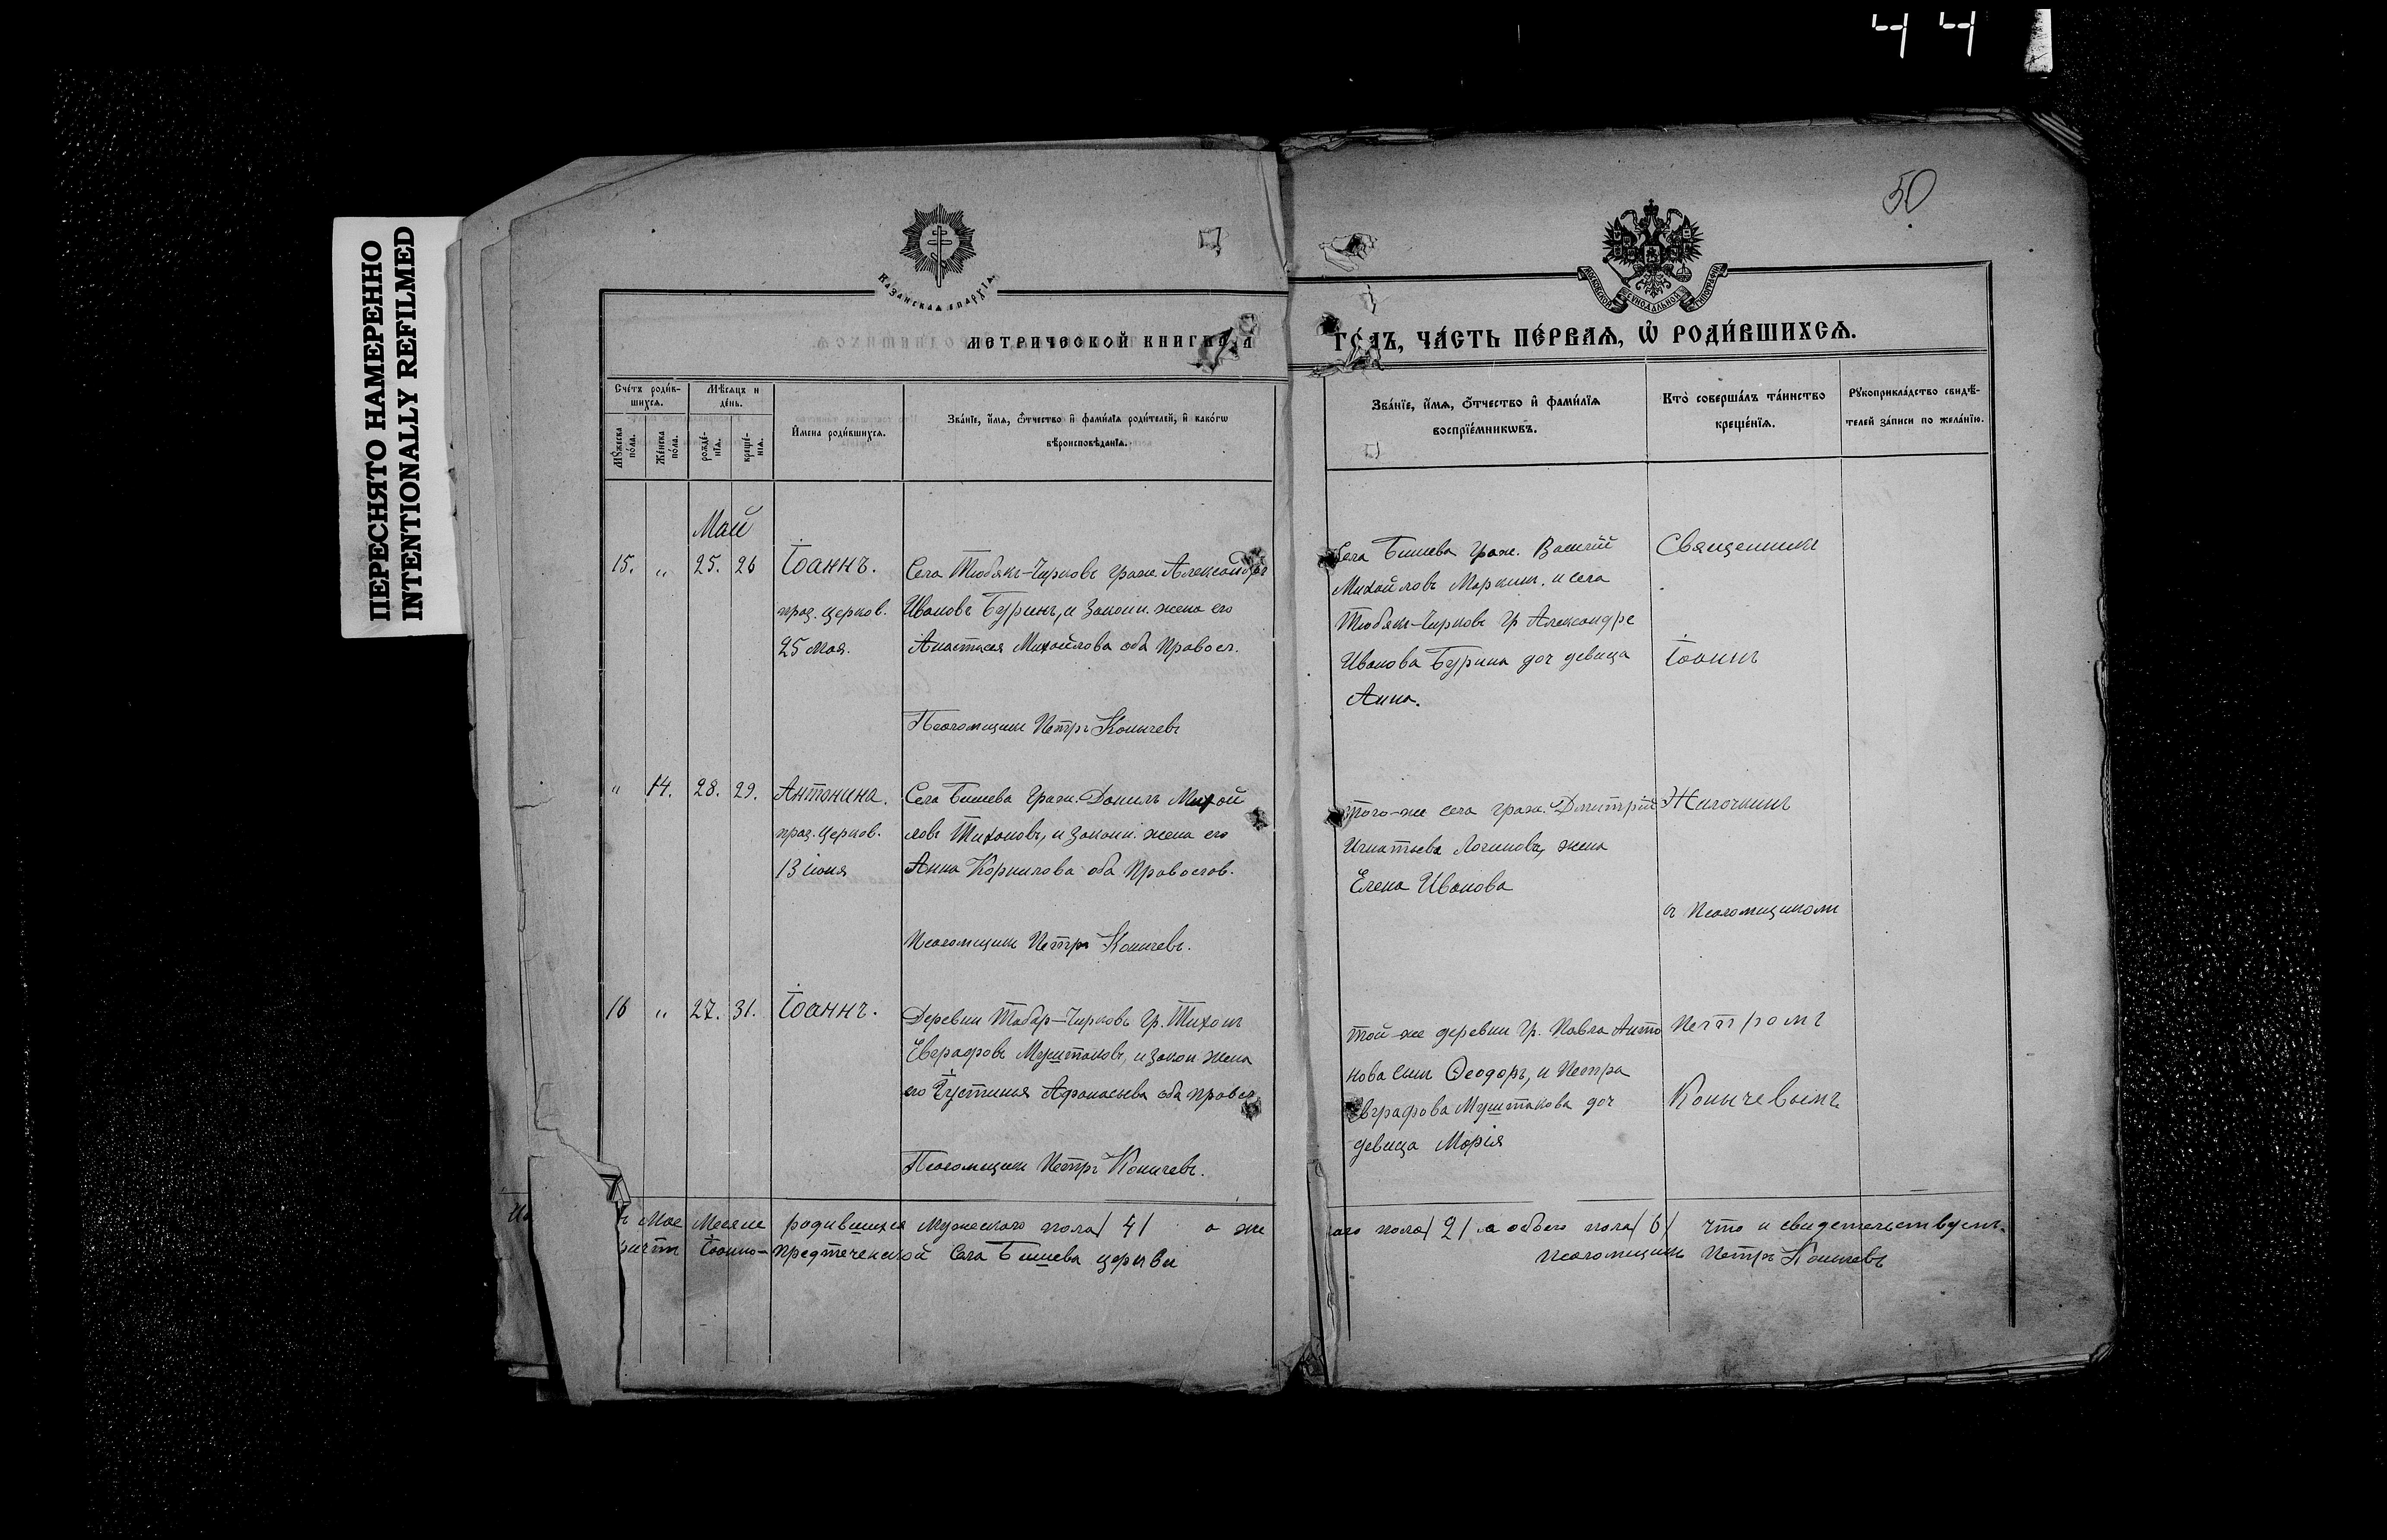 44
ПЕРЕСНЯТО НАМЕРЕННО
INTENTIONALLY REFILMED
50
КАЗАНСКАЯ ЕПАРХІЯ
МОСКОВСКОЙ СУНОДАЛЬНОЙ ТИПОГРАФІИ
МЕТРИЧЕСКОЙ КНИГИ
ГО́ДЪ, ЧА́СТЬ ПЕ́РВАѦ, Ѡ҆ РОДИ́ВШИХСѦ.
Сче́тъ роди́в-
шихсѧ.
Мѣ́сѧцъ и
де́нь.
Мꙋ́жеска
по́ла.
Же́нска
по́ла.
рожде́-
нїѧ.
креще́-
нїѧ.
И҆мена роди́вшихсѧ.
Зва́нїе, и҆́мѧ, ѻ҆́тчество и҆ фами́лїѧ роди́телей, и҆ како́гѡ
вѣроисповѣ́данїѧ.
Зва́нїе, и҆́мѧ, ѻ҆́тчество и҆ фами́лїѧ
воспрїе́мникѡвъ.
Кто̀ соверша́лъ та́инство
креще́нїѧ.
Рꙋкоприкла́дство свидѣ́-
телей за́писи по жела́нїю.
Май
15. " 25. 26 Іоаннъ.
праз. церков.
25 мая.
Села Тюбякъ-Чирковъ граж. Александръ
Ивановъ Буринъ, и законн. жена его
Анастасія Михайлова оба правосл.
Псаломщикъ Петръ Конычевъ
Села Бишева граж. Василій
Михайловъ Маркин. и села
Тюбякъ-Чирковъ гр Александра
Иванова Бурина доч девица
Анна.
Священникъ
Іоаннъ
" 14. 28. 29. Антонина.
праз. церков.
13 іюня
Села Бишева граж. Данилъ Михай
ловъ Тихоновъ, и законн. жена его
Анна Корнилова оба правослов.
Псаломщикъ Петръ Конычевъ.
того-же села граж. Дмитрій
Игнатьева Логиновъ, жена
Елена Иванова
Жилочкинъ
съ Псаломщикомъ
16 " 27. 31. Іоаннъ.
Деревни Табар-Чирковъ Гр. Тихонъ
Евграфовъ Муштаковъ, и закон жена
его Іустинья Афанасьева оба правосл
Псаломщикъ Петръ Конычевъ.
той-же деревни гр. Павла Анто
нова сын Ѳеодоръ, и Петра
Евграфова Муштакова доч
девица Марія
Петромъ
Конычевымъ
Мае Месяце родившихся мужескаго пола /4/ а же
скаго пола /2/ а обоего пола /6/ что и свидетельствуемъ
Іоанно-Предтеченской села Бишева церкви
псаломщикъ Петръ Конычевъ